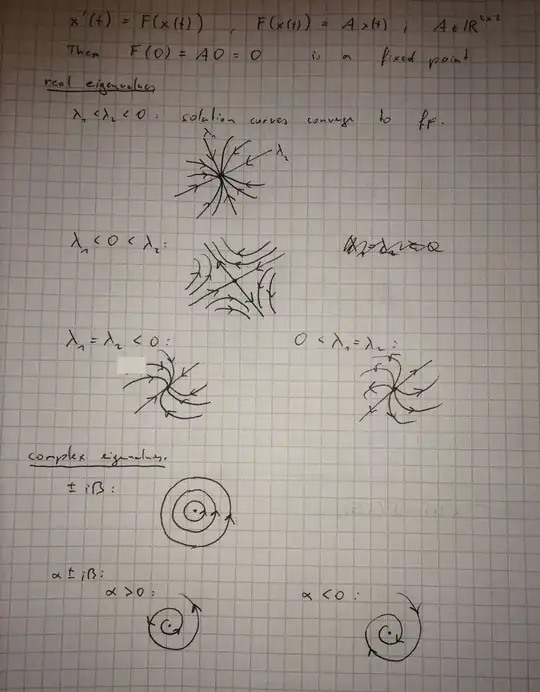 x'(t) = F(x(t)) , F(x(t)) = A x(t) , A ∈ ℝ^{2×2}
Then F(0) = A0 = 0 is a fixed point
real eigenvalues
λ₁ < λ₂ < 0 : solution curves converge to fp.
λ₁
λ₂
λ₁ < 0 < λ₂ :
λ₁ = λ₂ < 0 : 0 < λ₁ = λ₂ :
complex eigenvalues.
± iβ :
α ± iβ :
α > 0 : α < 0 :